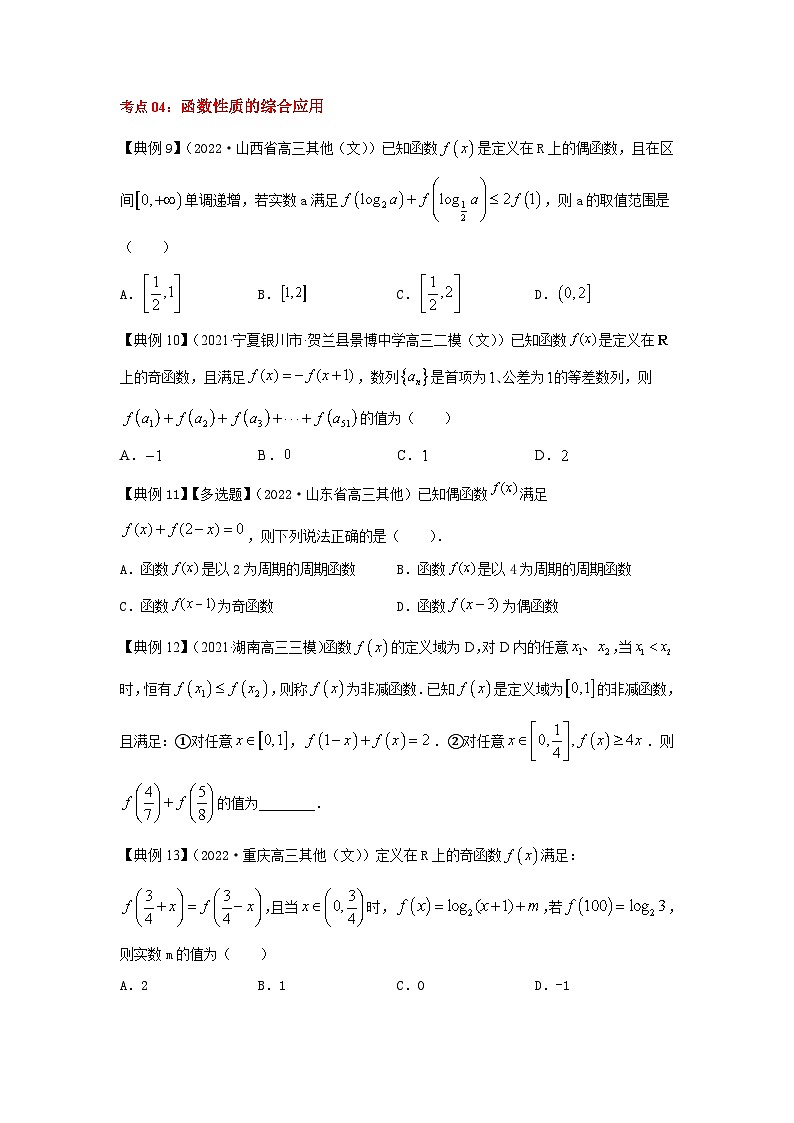 考点 04：函数性质的综合应用
【典例 9】（2022·山西省高三其他（文））已知函数 f(x) 是定义在 R 上的偶函数，且在区
间[0,+∞) 单调递增，若实数 a 满足 f(log₂a)+f(log_{1/2}a)≤2f(1)，则 a 的取值范围是
（　　）
A．[1/2,1]　　B．[1,2]　　C．[1/2,2]　　D．(0,2]
【典例 10】（2021·宁夏银川市·贺兰县景博中学高三二模（文））已知函数 f(x) 是定义在 R
上的奇函数，且满足 f(x)=−f(x+1)，数列{aₙ}是首项为 1、公差为 1的等差数列，则
f(a₁)+f(a₂)+f(a₃)+⋯+f(a₅₁)的值为（　　）
A．−1　　B．0　　C．1　　D．2
【典例 11】【多选题】（2022·山东省高三其他）已知偶函数 f(x) 满足
f(x)+f(2−x)=0，则下列说法正确的是（　　）．
A．函数 f(x) 是以 2 为周期的周期函数　　B．函数 f(x) 是以 4 为周期的周期函数
C．函数 f(x−1) 为奇函数　　D．函数 f(x−3) 为偶函数
【典例 12】（2021·湖南高三三模）函数 f(x) 的定义域为 D,对 D 内的任意 x₁、x₂,当 x₁<x₂
时,恒有 f(x₁)≤f(x₂),则称 f(x) 为非减函数.已知 f(x) 是定义域为[0,1]的非减函数,
且满足：①对任意 x∈[0,1]，f(1−x)+f(x)=2．②对任意 x∈[0,1/4],f(x)≥4x．则
f(4/7)+f(5/8) 的值为________．
【典例 13】（2022·重庆高三其他（文））定义在 R 上的奇函数 f(x) 满足：
f(3/4+x)=f(3/4−x),且当 x∈(0,3/4) 时，f(x)=log₂(x+1)+m,若 f(100)=log₂3，
则实数 m 的值为（　　）
A．2　　B．1　　C．0　　D．-1